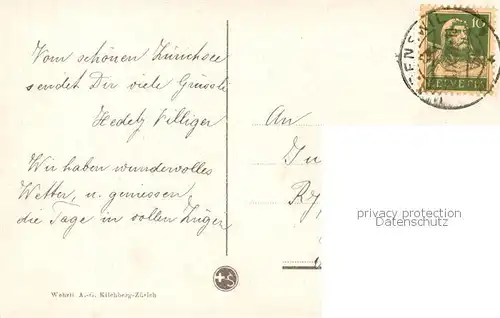 Vom schönen Zürichsee
sendet Dir viele Grüssli
Hedely Villiger
Wir haben wundervolles
Wetter, u. geniessen,
die Tage in vollen Zügen
An
10
HELVETIA
privacy protection
Datenschutz
Wehrli A.-G. Kilchberg-Zürich